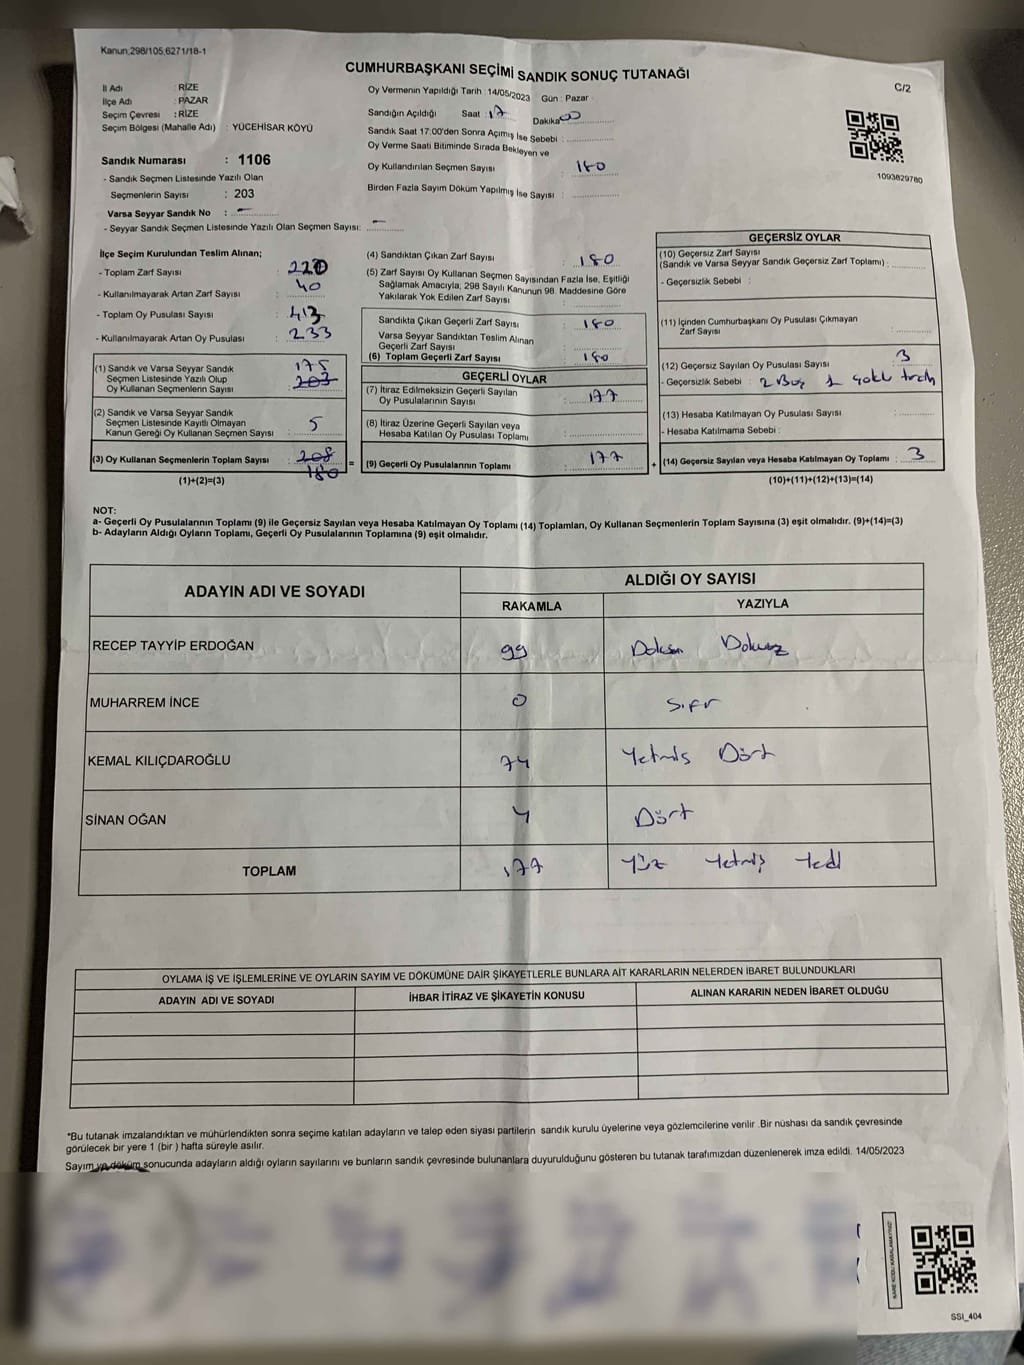 Kanun;298/105;6271/18-1
CUMHURBAŞKANI SEÇİMİ SANDIK SONUÇ TUTANAĞI
C/2
İl Adı : RİZE
İlçe Adı : PAZAR
Seçim Çevresi : RİZE
Seçim Bölgesi (Mahalle Adı) : YÜCEHİSAR KÖYÜ
Sandık Numarası : 1106
- Sandık Seçmen Listesinde Yazılı Olan
Seçmenlerin Sayısı : 203
Varsa Seyyar Sandık No : -
- Seyyar Sandık Seçmen Listesinde Yazılı Olan Seçmen Sayısı: -
Oy Vermenin Yapıldığı Tarih : 14/05/2023 Gün : Pazar
Sandığın Açıldığı Saat : 17 Dakika 00
Sandık Saat 17:00'den Sonra Açımış İse Sebebi :
Oy Verme Saati Bitiminde Sırada Bekleyen ve
Oy Kullandırılan Seçmen Sayısı : 180
Birden Fazla Sayım Döküm Yapılmış İse Sayısı :
1093829780
İlçe Seçim Kurulundan Teslim Alınan;
- Toplam Zarf Sayısı : 220
- Kullanılmayarak Artan Zarf Sayısı : 40
- Toplam Oy Pusulası Sayısı : 413
- Kullanılmayarak Artan Oy Pusulası : 233
(1) Sandık ve Varsa Seyyar Sandık
Seçmen Listesinde Yazılı Olup
Oy Kullanan Seçmenlerin Sayısı : 175 203
(2) Sandık ve Varsa Seyyar Sandık
Seçmen Listesinde Kayıtlı Olmayan
Kanun Gereği Oy Kullanan Seçmen Sayısı : 5
(3) Oy Kullanan Seçmenlerin Toplam Sayısı : 208 180
(1)+(2)=(3)
(4) Sandıktan Çıkan Zarf Sayısı : 180
(5) Zarf Sayısı Oy Kullanan Seçmen Sayısından Fazla İse, Eşitliği
Sağlamak Amacıyla, 298 Sayılı Kanunun 98. Maddesine Göre
Yakılarak Yok Edilen Zarf Sayısı :
Sandıkta Çıkan Geçerli Zarf Sayısı : 180
Varsa Seyyar Sandıktan Teslim Alınan
Geçerli Zarf Sayısı :
(6) Toplam Geçerli Zarf Sayısı : 180
GEÇERLİ OYLAR
(7) İtiraz Edilmeksizin Geçerli Sayılan
Oy Pusulalarının Sayısı : 177
(8) İtiraz Üzerine Geçerli Sayılan veya
Hesaba Katılan Oy Pusulası Toplamı :
= (9) Geçerli Oy Pusulalarının Toplamı : 177
GEÇERSİZ OYLAR
(10) Geçersiz Zarf Sayısı
(Sandık ve Varsa Seyyar Sandık Geçersiz Zarf Toplamı) :
- Geçersizlik Sebebi :
(11) İçinden Cumhurbaşkanı Oy Pusulası Çıkmayan
Zarf Sayısı :
(12) Geçersiz Sayılan Oy Pusulası Sayısı : 3
- Geçersizlik Sebebi : 2 Boş 1 çoklu
(13) Hesaba Katılmayan Oy Pusulası Sayısı :
- Hesaba Katılmama Sebebi :
+ (14) Geçersiz Sayılan veya Hesaba Katılmayan Oy Toplamı : 3
(10)+(11)+(12)+(13)=(14)
NOT:
a- Geçerli Oy Pusulalarının Toplamı (9) ile Geçersiz Sayılan veya Hesaba Katılmayan Oy Toplamı (14) Toplamları, Oy Kullanan Seçmenlerin Toplam Sayısına (3) eşit olmalıdır. (9)+(14)=(3)
b- Adayların Aldığı Oyların Toplamı, Geçerli Oy Pusulalarının Toplamına (9) eşit olmalıdır.
ADAYIN ADI VE SOYADI
ALDIĞI OY SAYISI
RAKAMLA YAZIYLA
RECEP TAYYİP ERDOĞAN 99 Doksan Dokuz
MUHARREM İNCE 0 Sıfır
KEMAL KILIÇDAROĞLU 74 Yetmiş Dört
SİNAN OĞAN 4 Dört
TOPLAM 177 Yüz Yetmiş Yedi
OYLAMA İŞ VE İŞLEMLERİNE VE OYLARIN SAYIM VE DÖKÜMÜNE DAİR ŞİKAYETLERLE BUNLARA AİT KARARLARIN NELERDEN İBARET BULUNDUKLARI
ADAYIN ADI VE SOYADI İHBAR İTİRAZ VE ŞİKAYETİN KONUSU ALINAN KARARIN NEDEN İBARET OLDUĞU
*Bu tutanak imzalandıktan ve mühürlendikten sonra seçime katılan adayların ve talep eden siyasi partilerin sandık kurulu üyelerine veya gözlemcilerine verilir .Bir nüshası da sandık çevresinde
görülecek bir yere 1 (bir ) hafta süreyle asılır.
Sayım ve döküm sonucunda adayların aldığı oyların sayılarını ve bunların sandık çevresinde bulunanlara duyurulduğunu gösteren bu tutanak tarafımızdan düzenlenerek imza edildi. 14/05/2023
KARE KODU KARALAMAYINIZ!
SSI_404